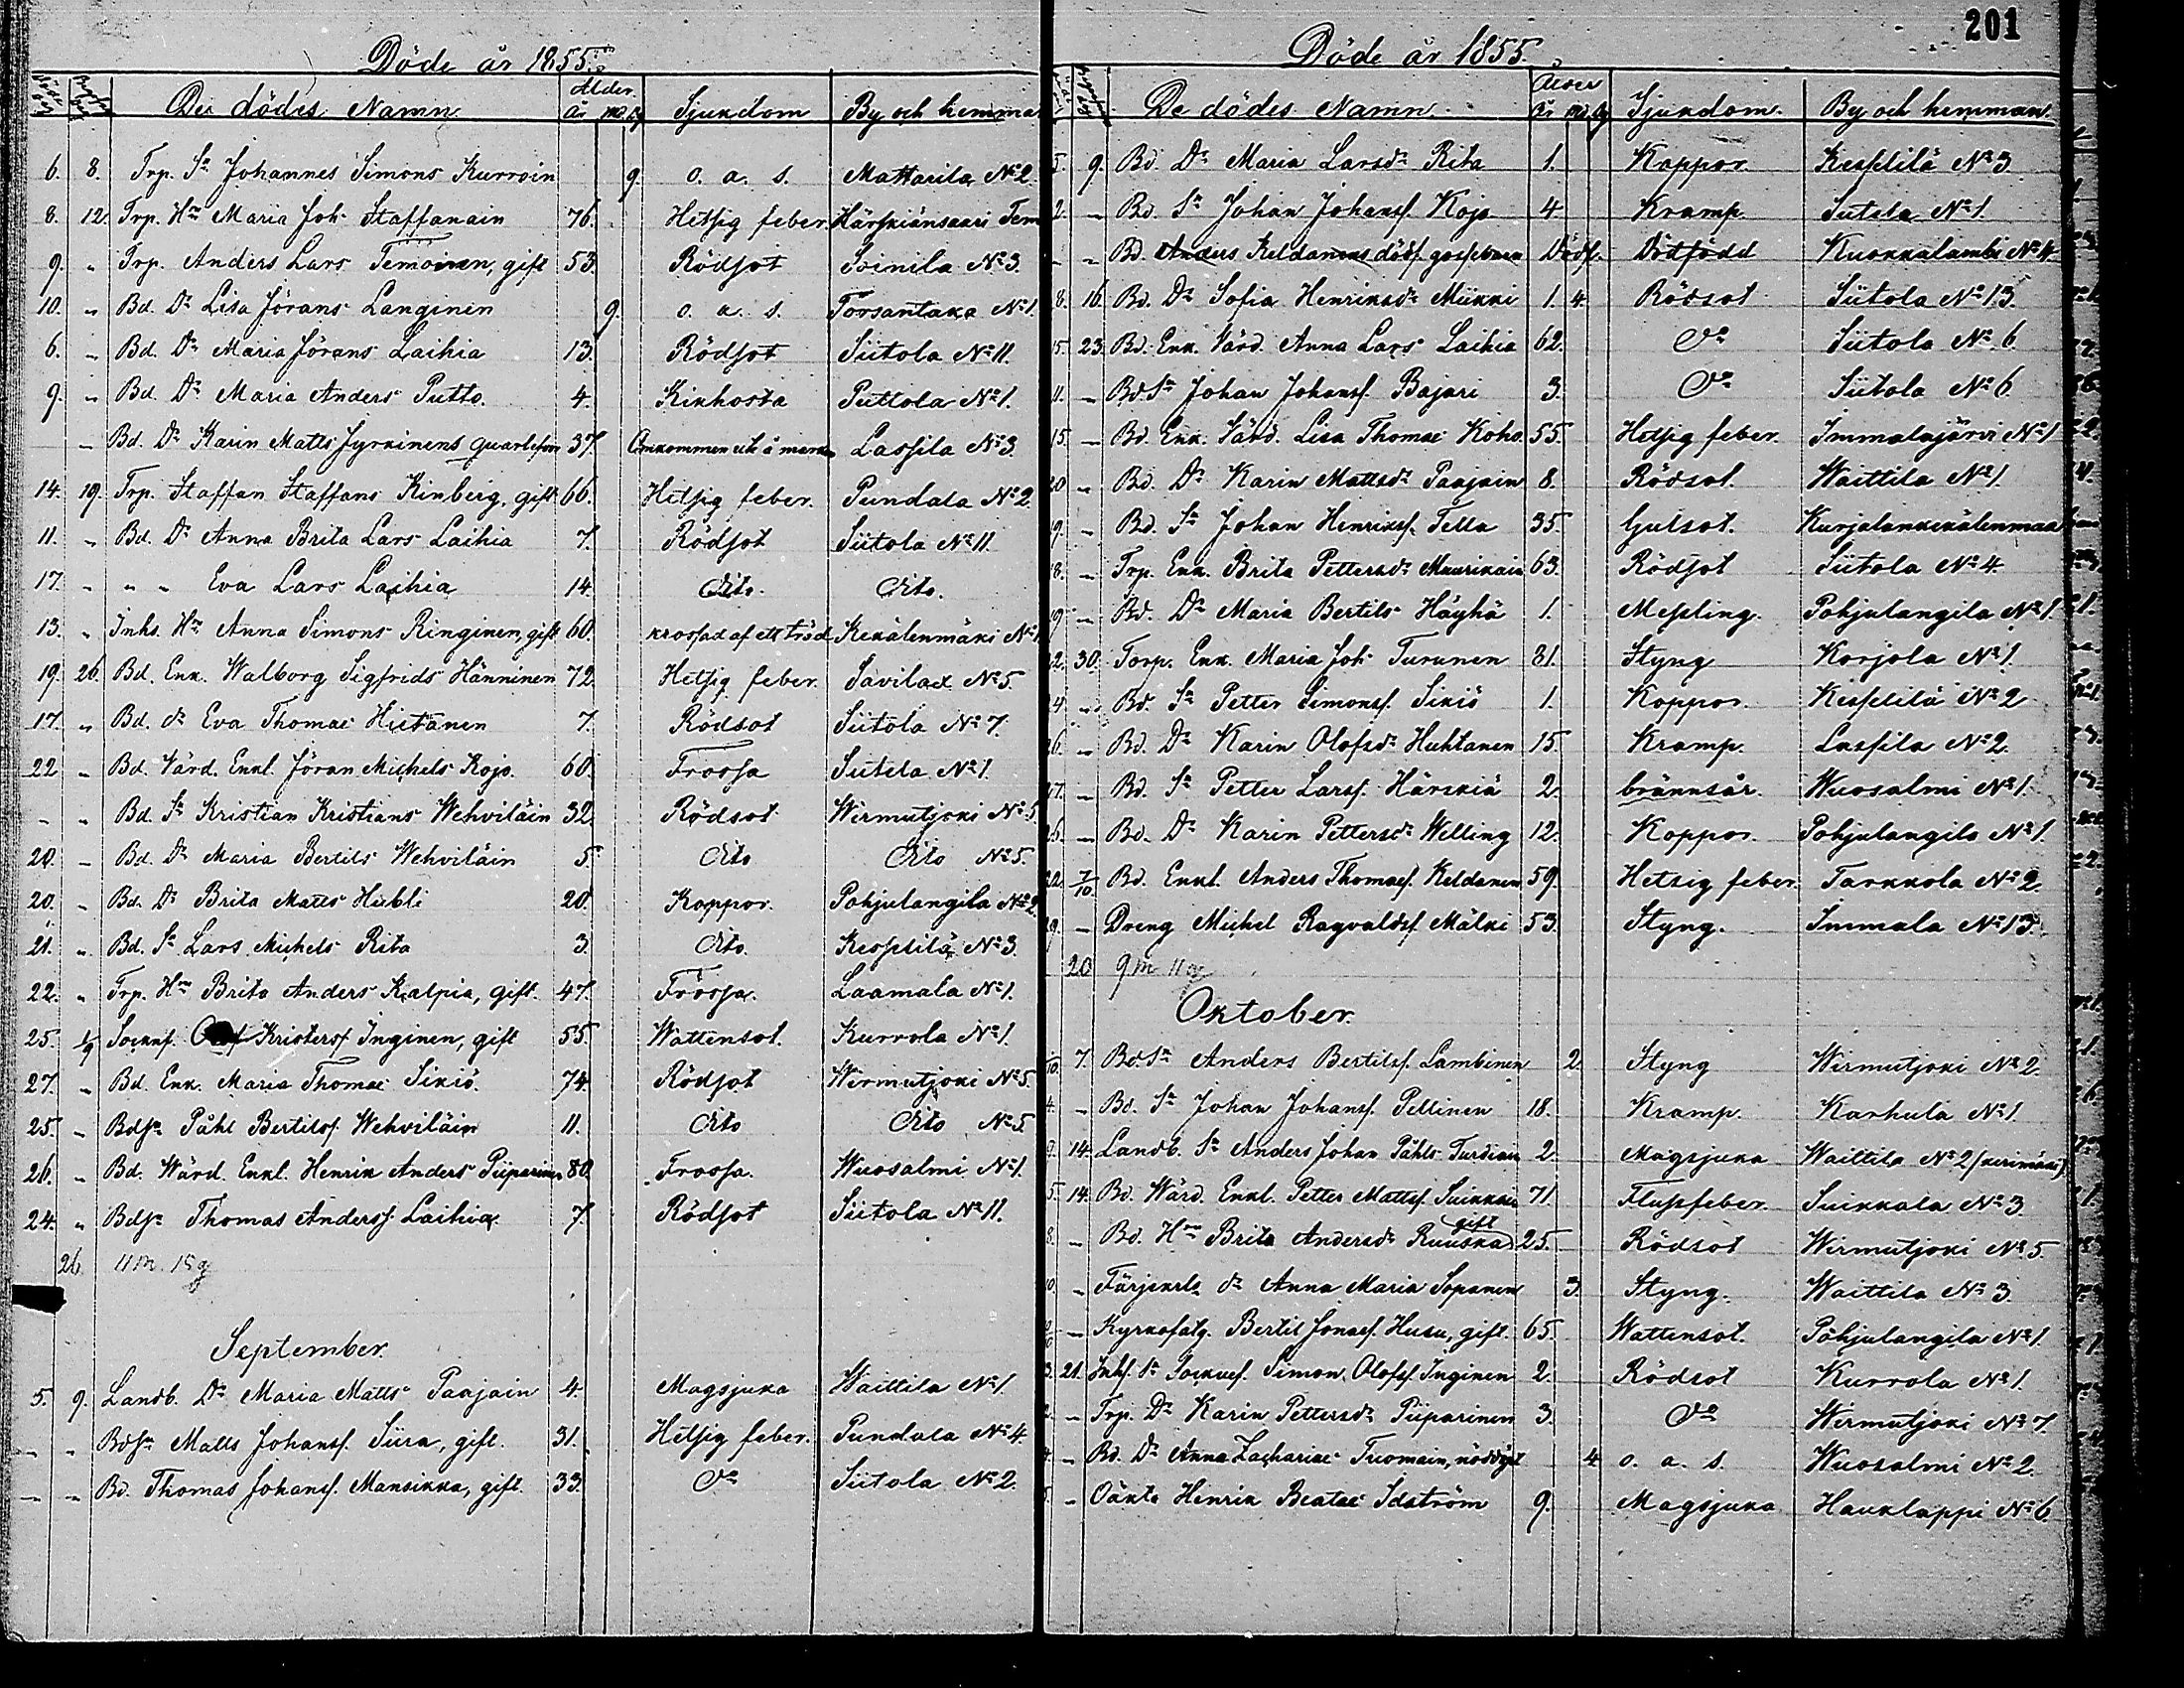 201
Döde år 1855.
De dödes Namn Ålder år m. d. Sjukdom By och hemma
6. 8. Trp. Sn Johannes Simons Kurroin 9. o. a. s. Mattarila No 2.
8. 12. Trp. Hn Maria Joh. Staffanain 76. Hetsig feber. Härskiänsaari Tem
9. " Trp. Anders Lars Temoinen, gift 53. Rödsot Soinila No 3.
10. " Bd. Dr Lisa Jörans Langinen 9. o. a. s. Torsantaka No 1.
6. " Bd. Dr Maria Jörans Laihia 13. Rödsot Siitola No 11.
9. " Bd. Dr Maria Anders Putto. 4. Kikhosta Puttola No 1.
– Bd. Dr Karin Matts Jyrkinens 37. Omkommen ute å marken Lassila No 3.
14. 19. Trp. Staffan Staffans Kinberg, gift 66. Hetsig feber. Pundala No 2.
11. " Bd. Dr Anna Brita Lars Laihia 7. Rödsot Siitola No 11
17. " " " Eva Lars Laihia 14. Dito. Dito.
13. " Inhs. Hn Anna Simons Ringinen, gift 60. krossad af ett träd Kekälenmäki No 1
19. 26. Bd. Enk. Walborg Sigfrids Hänninen 72. Hetsig feber. Savilax No 5.
17. " Bd. dr Eva Thomae Hietanen 7. Rödsot Siitola No 7.
22 " Bd. Värd. Enkl. Jöran Michels Kojo. 60. Frossa Sutela No 1.
– " Bd. Sn Kristian Kristians Wehviläin 32. Rödsot Wirmutjoki No 5.
20. – Bd. Dr Maria Bertils Wehviläin 5. Dito Dito No 5.
20. " Bd. Dr Brita Matts Hiebli 20. Koppor. Pohjulangila No 2
21. " Bd. Sn Lars Michels Rita 3. Dito. Kesselilä No 3.
22. " Trp. Hn Brita Anders Kalpia, gift. 47. Frossa. Laamala No 1.
25. 1/9 Socknf. Kristersf Inginen, gift 55. Wattensot. Kurrola No 1.
27. " Bd. Enk. Maria Thomae Sikiö. 74. Rödsot Wirmutjoki No 5.
25. " Bdsn Påhl Bertilsf. Wehviläin 11. Dito Dito No 5
26. " Bd. Wärd. Enkl. Henrik Anders Piiparinen 80. Frossa. Wuosalmi No 1.
24. " Bdsn Thomas Andersf. Laihia 7. Rödsot Siitola No 11.
26. 11 m. 15 q
September.
5. 9. Landb. Dr Maria Matts Paajain 4. Magsjuka Waittila No 1.
– " Bdsn Matts Johansf. Siira, gift. 31. Hetsig feber. Pundala No 4.
– " Bd. Thomas Johansf. Mansikka, gift. 33. Do Siitola No 2.
Döde år 1855.
De dödes Namn. Ålder år m. d. Sjukdom. By och hemman.
5. 9. Bd. Dr Maria Larsdr Rita 1. Koppor. Kesselilä No 3
2. – Bd. Sn Johan Johansf. Kojo 4 Kramp. Sutela No 1.
– " Bd. Anders Keldanens dödf. gossebarn Dödf. Dödfödd Kuokkalambi No 4
8. 16. Bd. Dr Sofia Henriksdr Miikki 1. 4. Rödsot Siitola No 13.
15. 23. Bd. Enk. Värd. Anna Lars Laihia 62. Do Siitola No 6
11. – Bd Sn Johan Johansf. Bajari 3. Do Siitola No 6
15. – Bd. Enk. Värd. Lisa Thomae Koho. 55. Hetsig feber. Immalajärvi No 1
20 " Bd. Dr Karin Mattsdr Paajain 8. Rödsot. Waittila No 1.
9. – Bd. Sn Johan Henriksf. Tella 35. Gulsot. Kurjalankekälenmaa
8. – Trp. Enk. Brita Pettersdr Muurikain 63. Rödsot Siitola No 4.
19 – Bd. Dr Maria Bertils Häyhä 1. Messling. Pohjulangila No 1.
22. 30. Torp. Enk. Maria Joh. Turunen 81. Styng Korjola No 1.
24. " Bd. Sn Petter Simonsf. Sikiö 1. Koppor. Kesselilä No 2
26. – Bd. Dr Karin Olofsdr Huhtanen 15. Kramp. Lassila No 2.
27. – Bd. Sn Petter Larsf. Härskiä 2. brännsår. Wuosalmi No 1.
26. – Bd. Dr Karin Pettersdr Welling 12. Koppor. Pohjulangila No 1.
7/10 Bd. Enkl. Anders Thomaef. Keldanen 59. Hetsig feber. Tarkkola No 2.
29. – Dreng Michel Ragvaldsf. Mälki 53. Styng. Immala No 13.
20 9 m 11 q
Oktober.
7. Bd. Sn Anders Bertilsf. Lambinen 2. Styng Wirmutjoki No 2.
4. – Bd. Sn Johan Johansf. Pellinen 18. Kramp. Karhula No 1.
9. 14. Landb. Sn Anders Johan Påhls Turdiain 2. Magsjuka Waittila No 2 (kerimäki)
5. 14. Bd. Wärd. Enkl. Petter Mattsf. Suikkain 71. Flussfeber. Suikkala No 3.
8. – Bd. Hn Brita Andersdr Ruuska gift 25. Rödsot Wirmutjoki No 5.
10. – Färjekarls dr Anna Maria Sopanen 3. Styng. Waittila No 3.
– Kyrkofatg. Bertil Jonaef. Husu, gift. 65. Wattensot. Pohjulangila No 1.
3. 21. Inhs. Sn Socknef. Simon Olofsf. Inginen 2. Rödsot Kurrola No 1.
2. – Trp. Dr Karin Pettersdr Piiparinen 3. Do Wirmutjoki No 7.
4. – Bd. Dr Anna Zachariae Tuomain, nöddöpt 4 o. a. s. Wuosalmi No 2.
5. " Oäkta Henrik Beatae Idström 9. Magsjuka Hauklappi No 6.